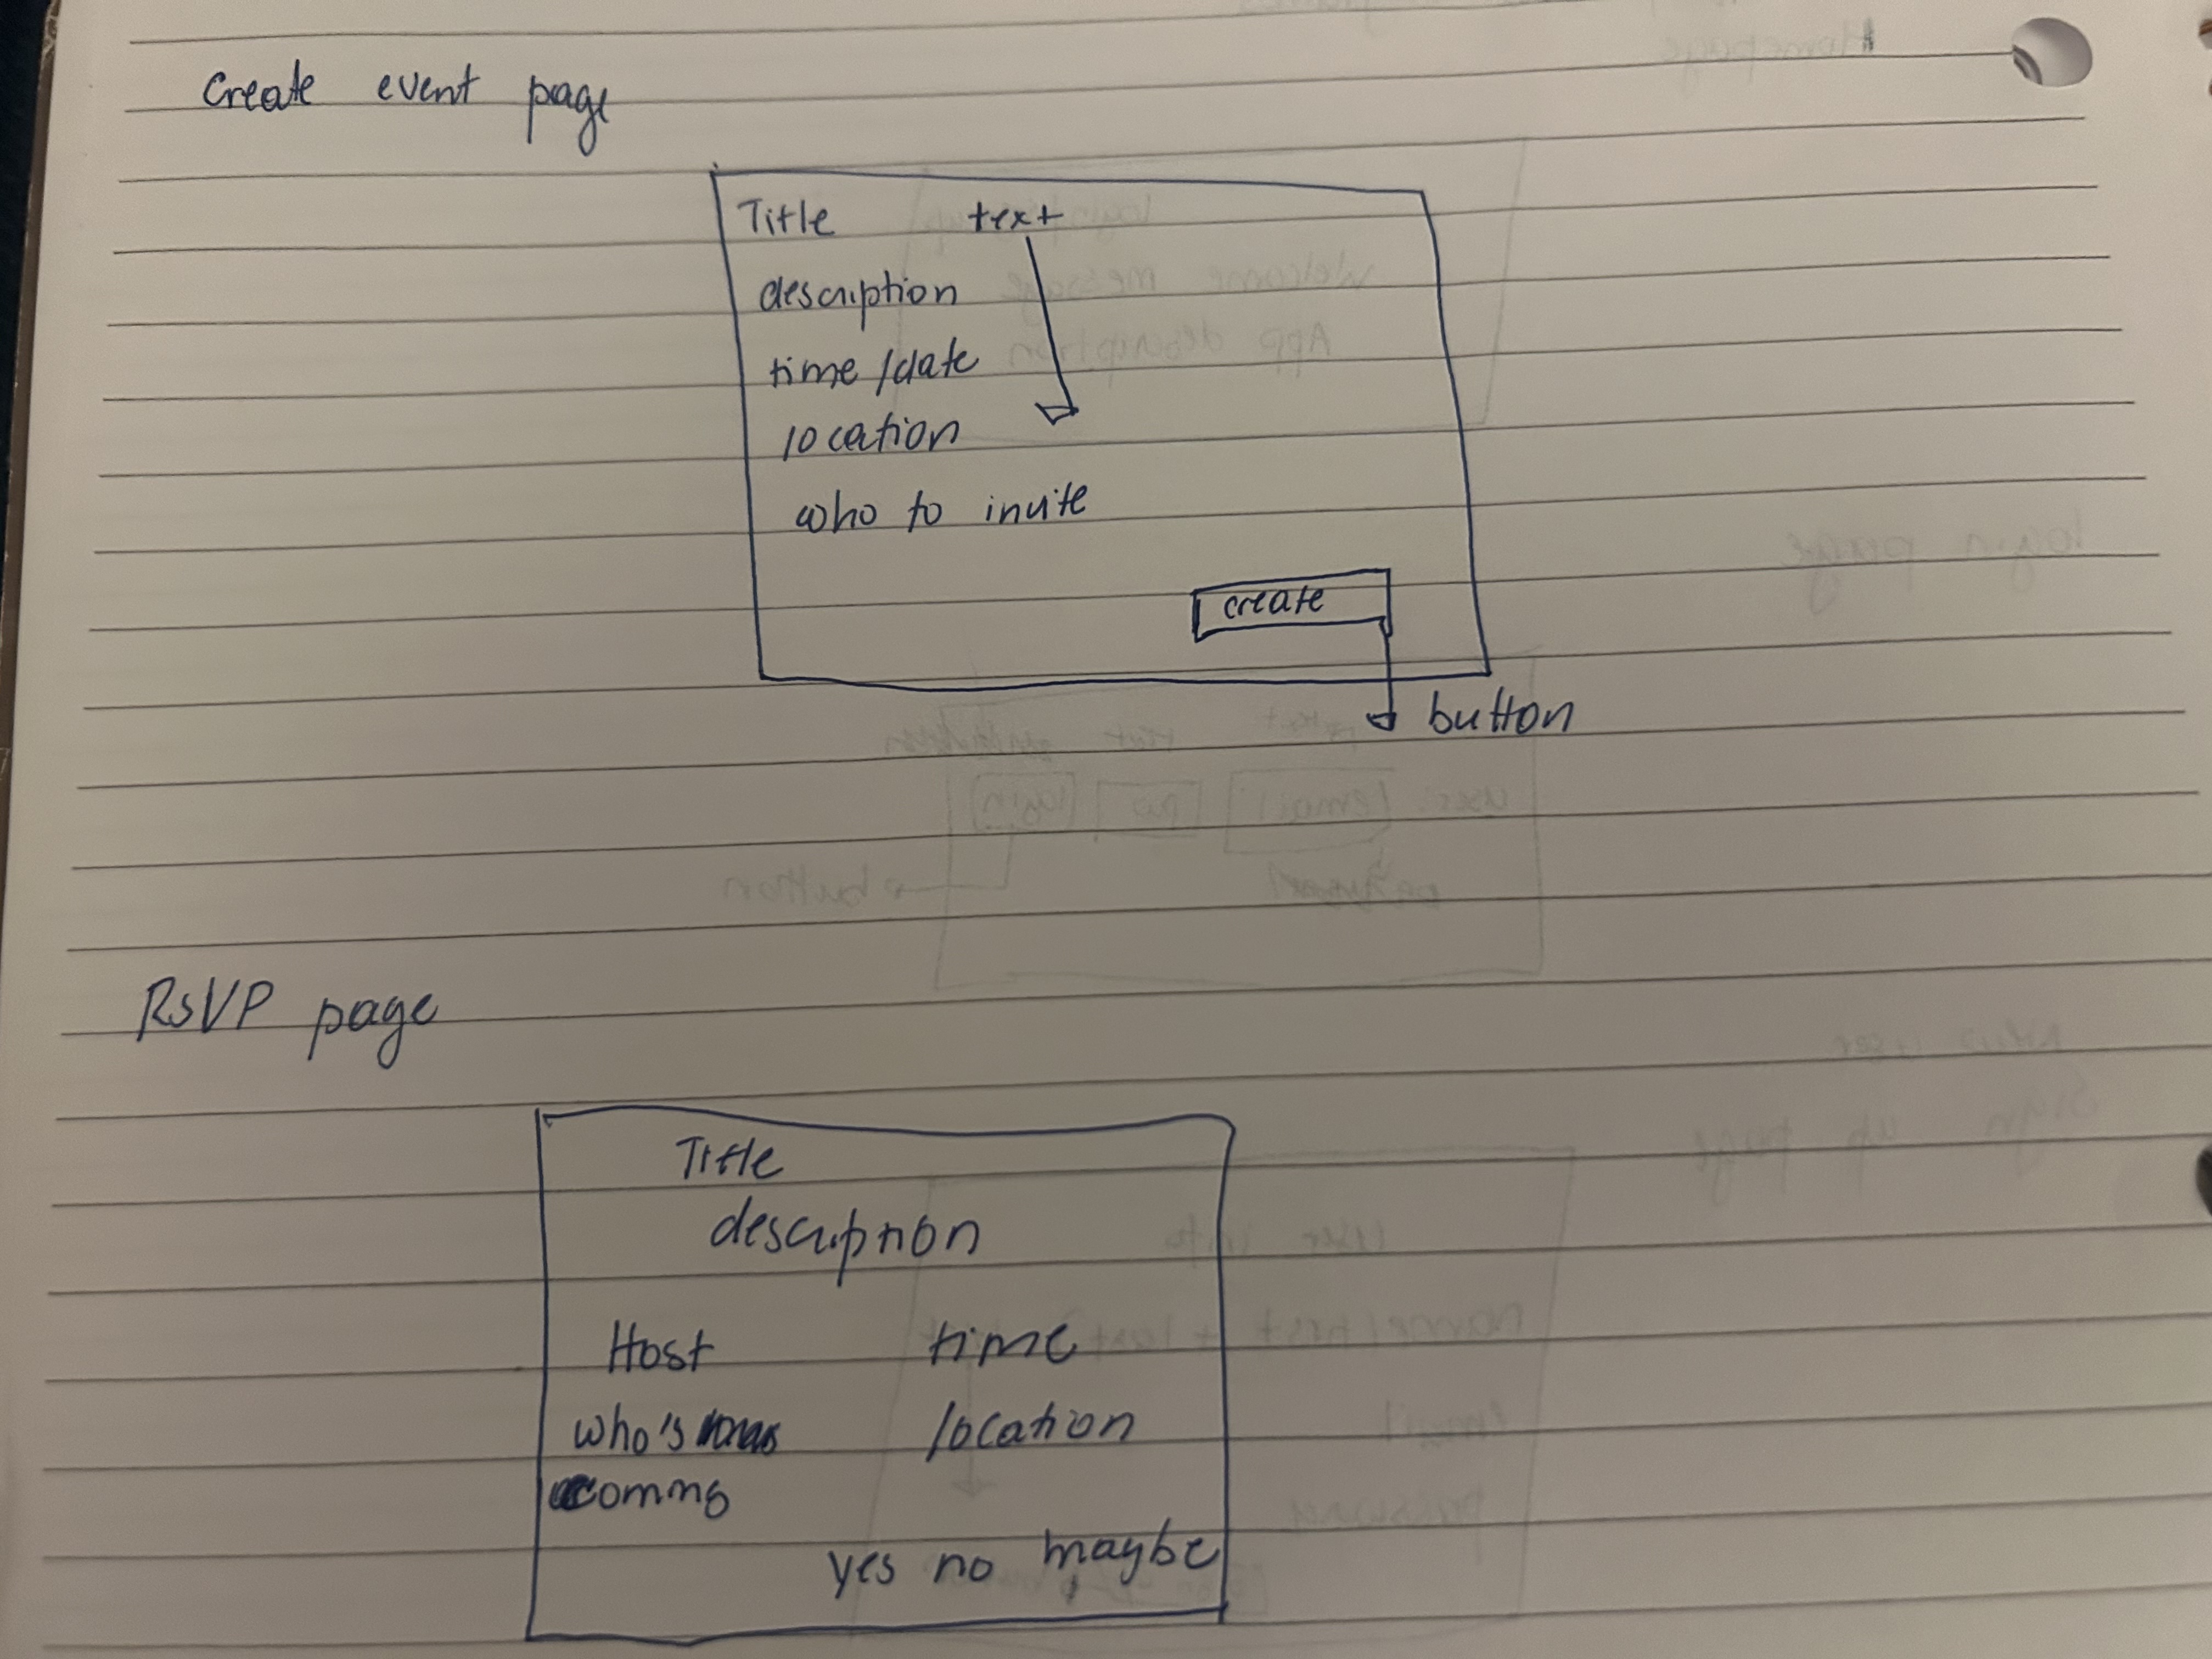 Create event page
Title text
description
time/date
location
who to invite
create
button
RSVP page
Title
description
Host time
who's location
coming
yes no maybe